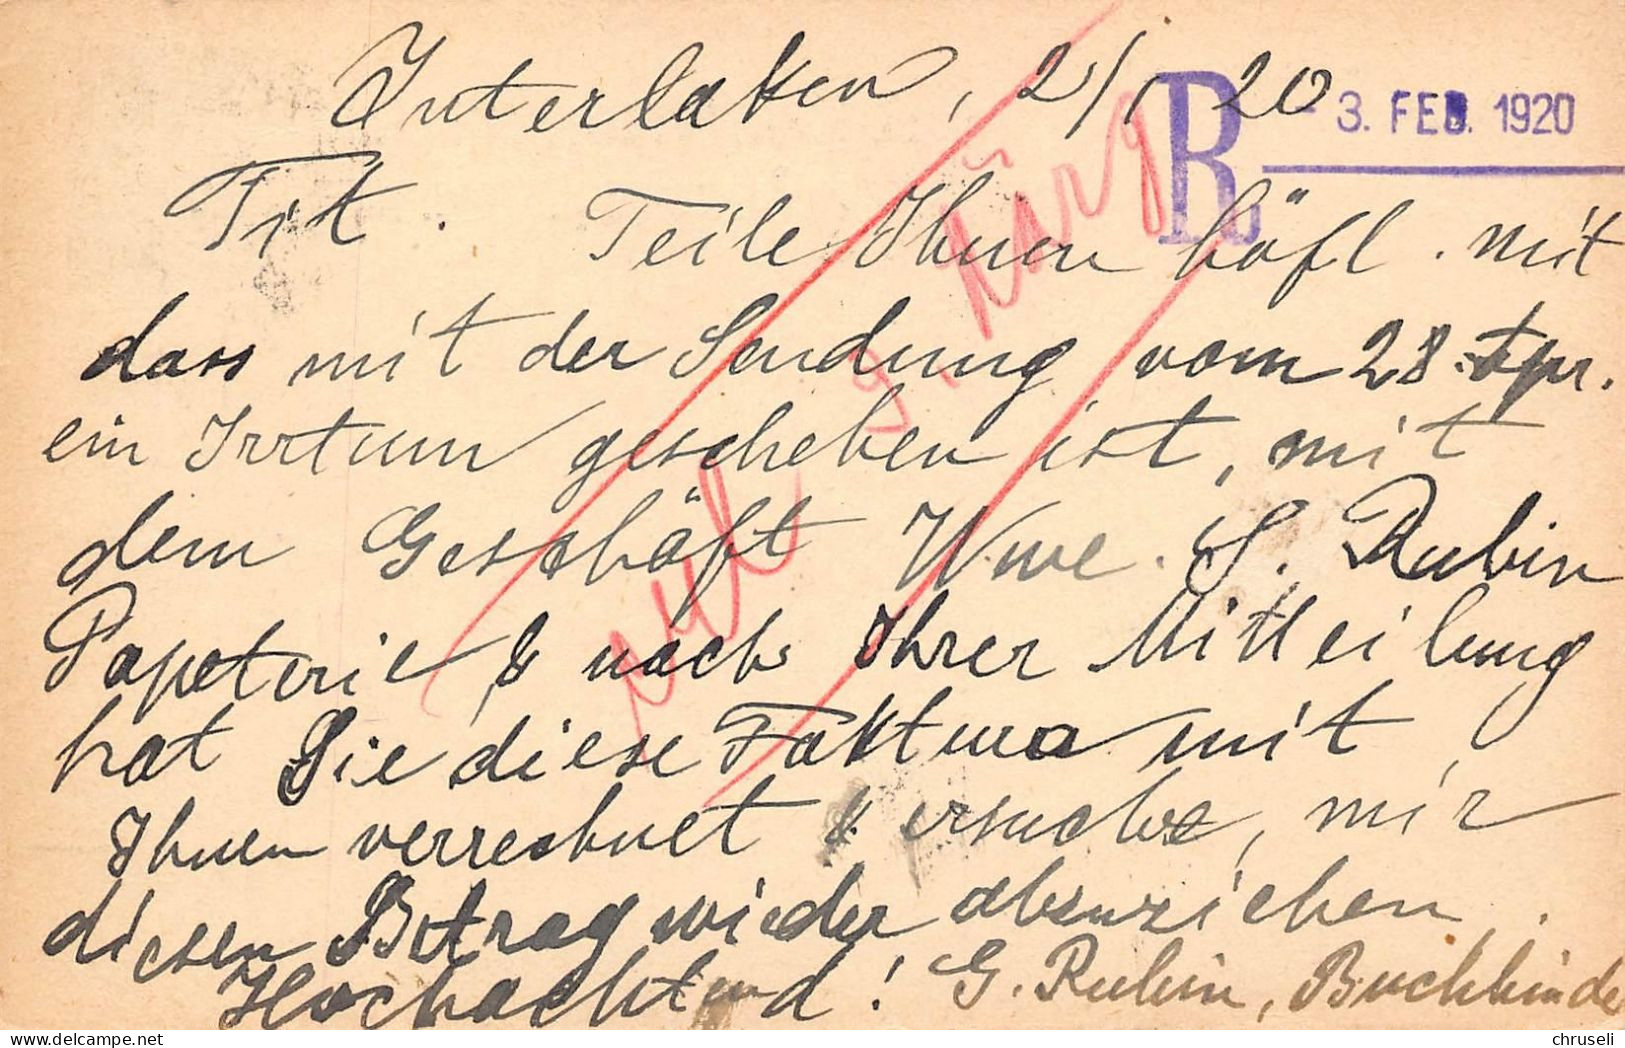 Interlaken, 2/1 20
R 3. FEB. 1920
Tit. Teile Ihnen höfl. mit
dass mit der Sendung vom 28.
ein Irrtum geschehen ist, mit
dem Geschäft Wwe. S. Rubin
Papeterie, & nach Ihrer Mitteilung
hat Sie diese Faktura mit
Ihnen verrechnet & ersuche, mir
diesen Betrag wieder abzuziehen.
Hochachtend! G. Rubin, Buchbinde
delcampe.net
chruseli